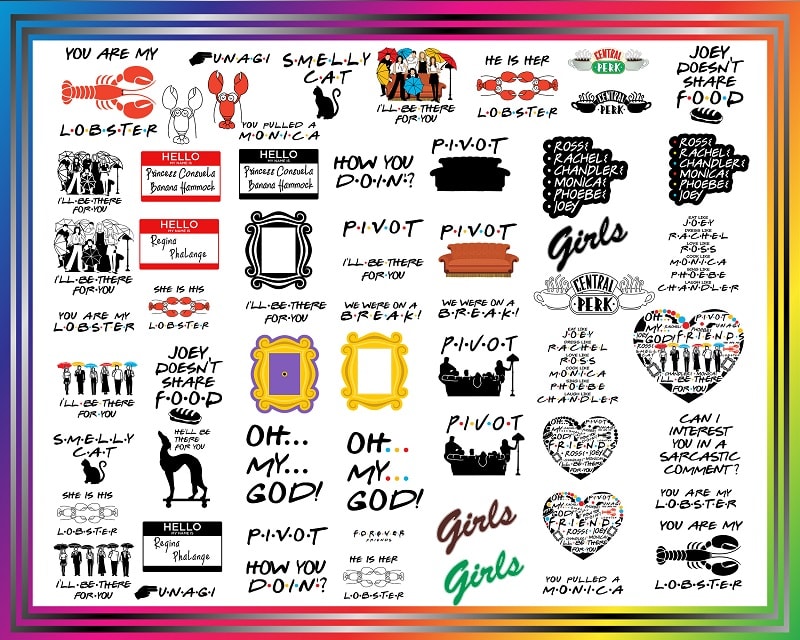 YOU ARE MY
L·O·B·S·T·E·R
U·N·A·G·I
YOU PULLED A
M·O·N·I·C·A
S·M·E·L·L·Y
C·A·T
I'LL·BE·THERE
FOR·YOU
HE IS HER
L·O·B·S·T·E·R
CENTRAL
PERK
CENTRAL
PERK
JOEY
DOESN'T
SHARE
F·O·O·D
I'LL·BE·THERE
FOR·YOU
HELLO
MY NAME IS
Princess Consuela
Banana Hammock
HELLO
MY NAME IS
Princess Consuela
Banana Hammock
HOW YOU
D·O·I·N'?
P·I·V·O·T
ROSS&
RACHEL&
CHANDLER&
MONICA&
PHOEBE&
JOEY
ROSS&
RACHEL&
CHANDLER&
MONICA&
PHOEBE&
JOEY
I'LL·BE·THERE
FOR·YOU
HELLO
MY NAME IS
Regina
Phalange
I'LL·BE·THERE
FOR·YOU
P·I·V·O·T
I'LL·BE·THERE
FOR·YOU
P·I·V·O·T
Girls
CENTRAL
PERK
EAT LIKE
J·O·E·Y
DRESS LIKE
R·A·C·H·E·L
LOVE LIKE
R·O·S·S
COOK LIKE
M·O·N·I·C·A
SING LIKE
P·H·O·E·B·E
LAUGH LIKE
C·H·A·N·D·L·E·R
YOU ARE MY
L·O·B·S·T·E·R
SHE IS HIS
L·O·B·S·T·E·R
WE WERE ON A
B·R·E·A·K!
WE WERE ON A
B·R·E·A·K!
I'LL·BE·THERE
FOR·YOU
JOEY
DOESN'T
SHARE
F·O·O·D
P·I·V·O·T
EAT LIKE
J·O·E·Y
DRESS LIKE
R·A·C·H·E·L
LOVE LIKE
R·O·S·S
COOK LIKE
M·O·N·I·C·A
SING LIKE
P·H·O·E·B·E
LAUGH LIKE
C·H·A·N·D·L·E·R
OH... P·I·V·O·T
MY... UNAGI
GOD! F·R·I·E·N·D·S
ROSS
CHANDLER MONICA
I'LL BE THERE
FOR YOU
S·M·E·L·L·Y
C·A·T
HE'LL BE
THERE FOR
YOU
OH...
MY...
GOD!
OH...
MY...
GOD!
P·I·V·O·T
OH... PIVOT
MY...
GOD! FRIENDS
ROSS MONICA
I'LL BE THERE
FOR YOU
CAN I
INTEREST
YOU IN A
SARCASTIC
COMMENT?
SHE IS HIS
L·O·B·S·T·E·R
I'LL·BE·THERE
FOR·YOU
HELLO
MY NAME IS
Regina
Phalange
U·N·A·G·I
P·I·V·O·T
HOW YOU
D·O·I·N'?
F·O·R·E·V·E·R
F·R·I·E·N·D·S
HE IS HER
L·O·B·S·T·E·R
Girls
Girls
OH... PIVOT
MY...
GOD!
F·R·I·E·N·D·S
ROSS MONICA
I'LL BE THERE
FOR YOU
YOU PULLED A
M·O·N·I·C·A
YOU ARE MY
L·O·B·S·T·E·R
YOU ARE MY
L·O·B·S·T·E·R